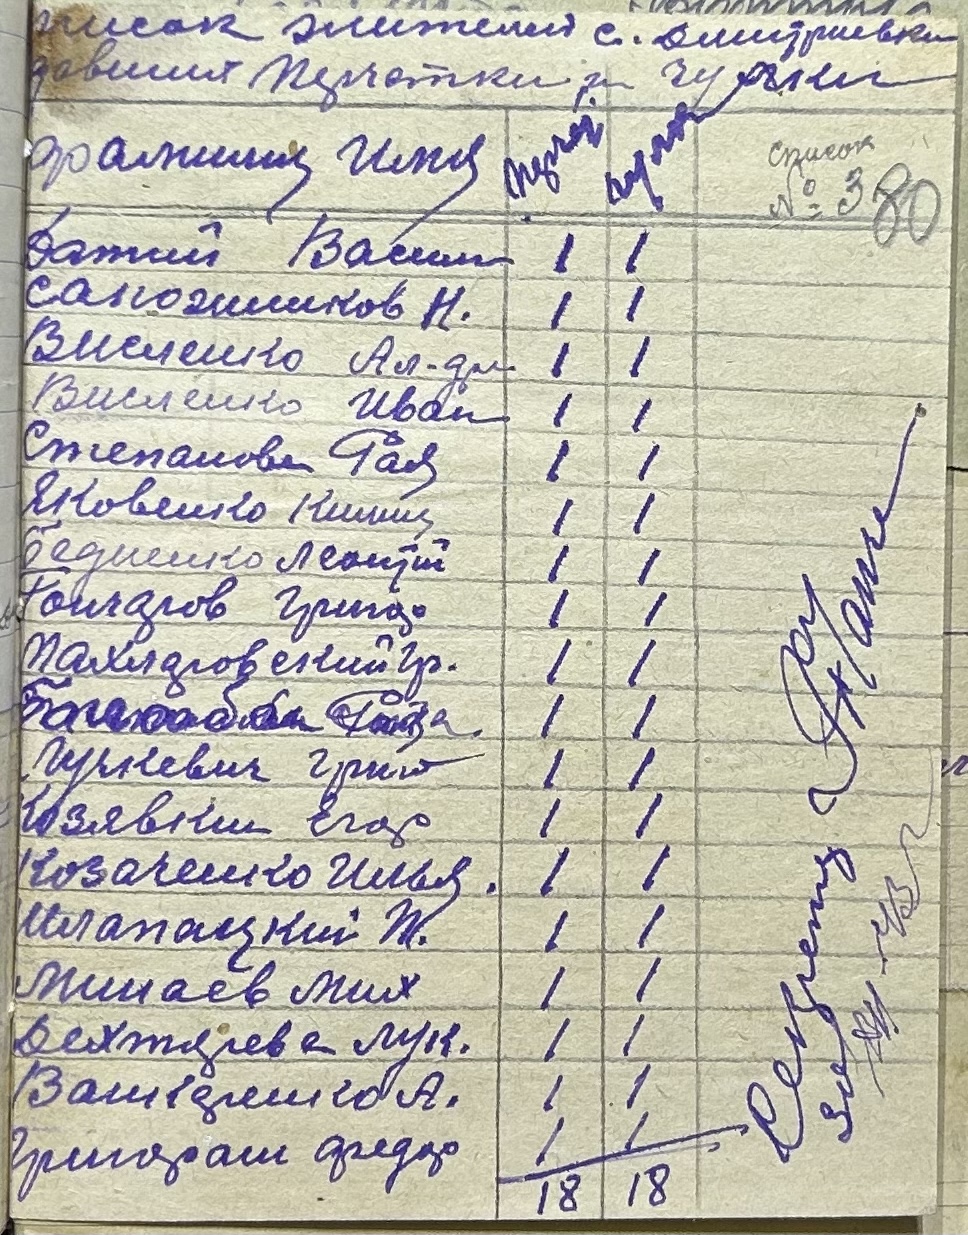 список жителей с. Дмитриевки
давших перчатки и чулки
Фамилия Имя
перчат
чулки
Список
№ 3
80
Батий Васили 1 1
Сапожников Н. 1 1
Висленко Ал-др 1 1
Висленко Иван 1 1
Степанова Рая 1 1
Яковенко 1 1
Бедненко Леонтий 1 1
Гончаров Григор 1 1
Пахляровский Гр. 1 1
1 1
Луцкевич Григ 1 1
Козявкин Егор 1 1
Козаченко Илья. 1 1
Шлапацкий Т. 1 1
Минаев Мих 1 1
Дехтярева Лук. 1 1
А. 1 1
Григораш Федор 1 1
18 18
Секретарь